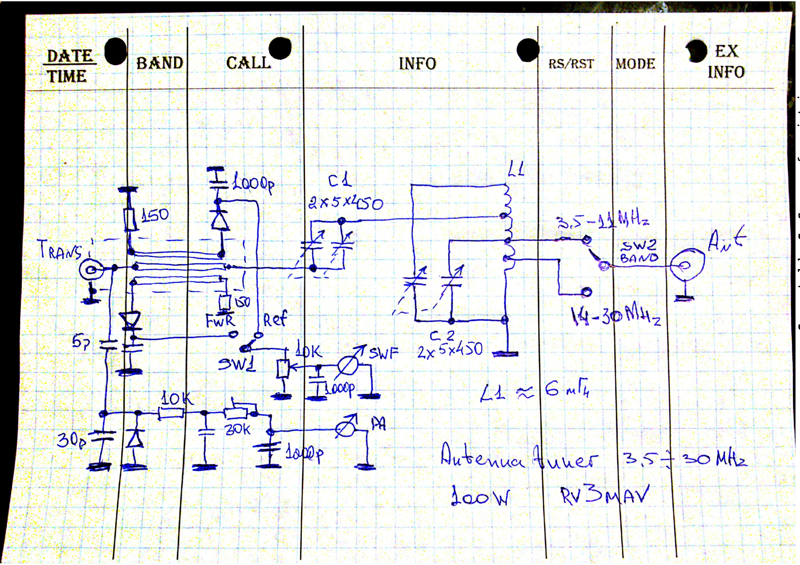 DATE TIME BAND CALL INFO RS/RST MODE EX INFO
1000p
150
TRANS
C1
2x5x450
L1
3.5-11MHz
SW2
BAND
Ant
14-30MHz
150
FWR
Ref
SW1
5p
10K
SWF
1000p
C2
2x5x450
L1 ≈ 6 мГн
10K
30K
30p
1000p
PA
Antenna tuner 3,5÷30MHz
100W RV3MAV